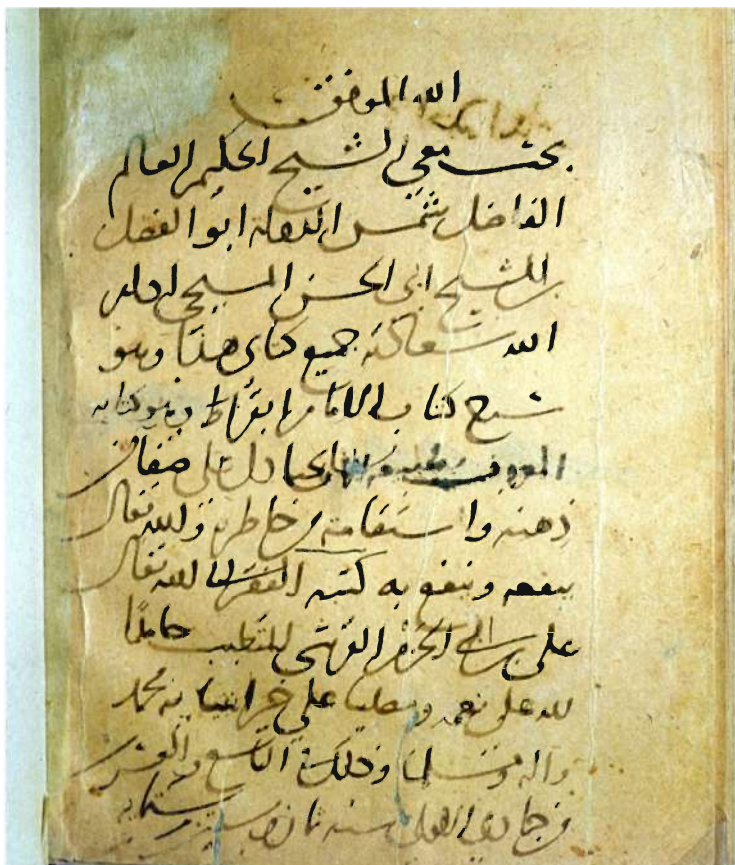 الله الموفق
بحث معي الشيخ الحكيم العالم
الفاضل شمس الدولة ابو الفضل
بن الشيخ ابى الحسن المسيحي ادام
الله سعادته جميع كتابى هذا وهو
شرح كتاب الامام ابقراط وهو كتابه
المعروف بطبيعة الانسان بحثا دل على صفاء
ذهنه واستقامة خاطره والله تعالى
ينفعه وينفع به كتبه الفقير الى الله تعالى
على بن ابي الحزم القرشى المتطبب حامدا
لله على نعمه ومصليا على خير انبيائه محمد
واله ومسلما وذلك في التاسع والعشرين
من جمادى الاولى سنه ثمان وستين وستمايه